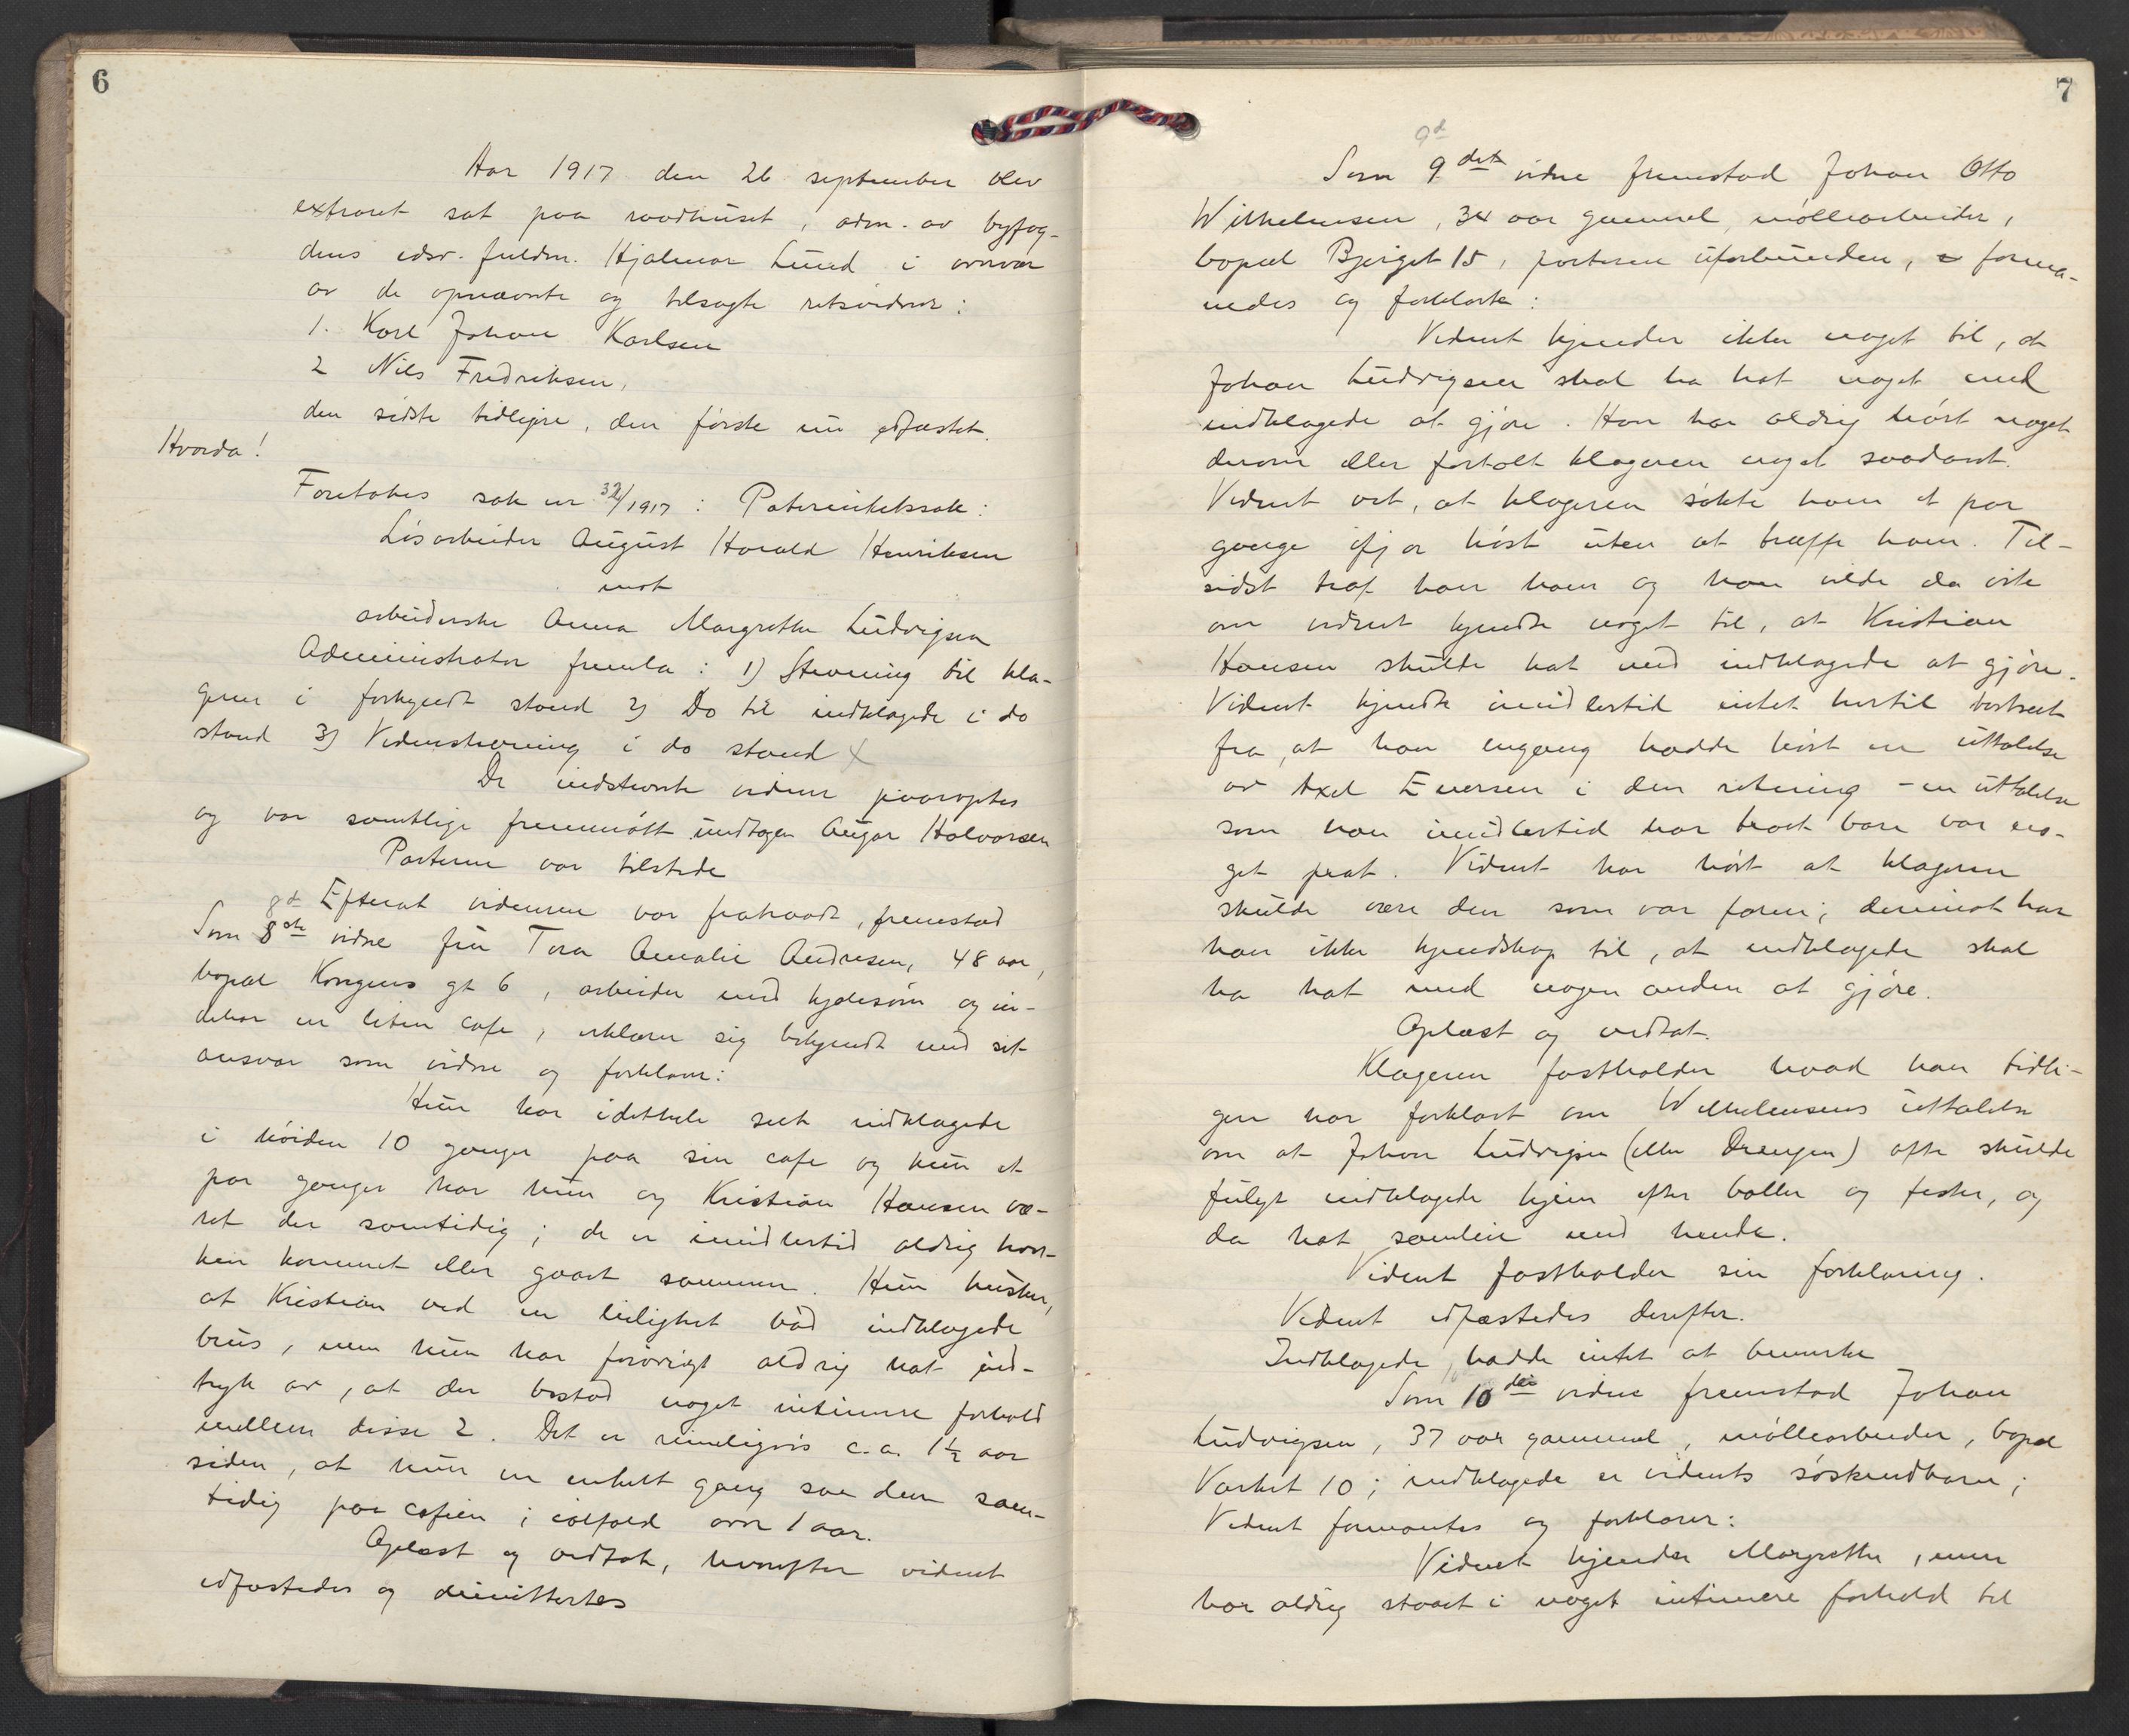 6
Aar 1917 den 26 september blev
extraret sat paa raadhuset, adm. av byfog-
dens edsv. fuldm. Hjalmar Lund i nærvær
av de opnævnte og tilsagte retsvidner:
1. Karl Johan Karlsen
2 Nils Fredriksen,
den sidste tidligere, den første nu edfæstet.
Hvorda!
Foretokes sak nr 32/1917: Paternitetssak:
Løsarbeider August Harald Henriksen
mot
arbeiderske Anna Margrethe Ludvigsen
Administrator fremla: 1) Stevning til kla-
geren i forkyndt stand 2) Do til indklagede i do
stand 3) Vidnestevning i do stand X
De indstevnte vidner paaroptes
og var samtlige fremmøtt undtagen Aagar Halvorsen
Parterne var tilstede
8de Efterat vidnerne var fratraadt, fremstod
Som 8de vidne fru Tora Amalie Andresen, 48 aar,
bopæl Kongens gt 6, arbeider med kjolesøm og in-
dehar en liten cafe, erklærer sig bekjendt med sit
ansvar som vidne og forklarer:
Hun har idethele seet indklagede
i høiden 10 ganger paa sin cafe og kun et
par ganger har hun og Kristian Hansen væ-
ret der samtidig; de er imidlertid aldrig hver-
ken kommet eller gaaet sammen. Hun husker,
at Kristian ved en leilighet bød indklagede
brus, men hun har forøvrigt aldrig hat ind-
tryk av, at der bestod noget intimere forhold
mellem disse 2. Det er rimeligvis c.a. 1½ aar
siden, at hun en enkelt gang saa dem sam-
tidig paa cafeen i ialfald over 1 aar.
Oplæst og vedtat, hvorefter vidnet
edfæstedes og dimittertes
7
9d
Som 9de vidne fremstod Johan Otto
Wilhelmsen, 34 aar gammel møllearbeider,
bopæl Bjerget 15, parterne uforbunden, forma-
nedes og forklarte:
Vidnet kjender ikke noget til, at
Johan Ludvigsen skal ha hat noget med
indklagede at gjøre. Han har aldrig hørt noget
derom eller fortalt klageren noget saadant.
Vidnet vet, at klageren søkte ham et par
gange ifjor høst uten at træffe ham. Til-
sidst traf han ham og han vilde da vite
om vidnet kjendte noget til, at Kristian
Hansen skulde hat med indklagede at gjøre.
Vidnet kjendte imidlertid intet hertil bortseet
fra, at han engang hadde hørt en uttalelse
av Axel Evensen i den retning - en uttalelse
som han imidlertid har troet bare var no-
get prat. Vidnet har hørt at klageren
skulde være den som var faren; derimot har
han ikke kjendskap til, at indklagede skal
ha hat med nogen anden at gjøre.
Oplæst og vedtat.
Klageren fastholder hvad han tidli-
gere har forklart om Wilhelmsens uttalelse
om at Johan Ludvigsen (eller Drengen) ofte skulde
fulgt indklagede hjem efter baller og fester, og
da hat samleie med hende.
Vidnet fastholder sin forklaring.
Vidnet edfæstedes derefter.
Indklagede hadde intet at bemerke
Som 10de vidne fremstod Johan
Ludvigsen, 37 aar gammel, møllearbeider, bopæl
Værket 10; indklagede er vidnets søskendbarn;
Vidnet formantes og forklarer:
Vidnet kjender Margrethe, men
har aldrig staaet i noget intimere forhold til